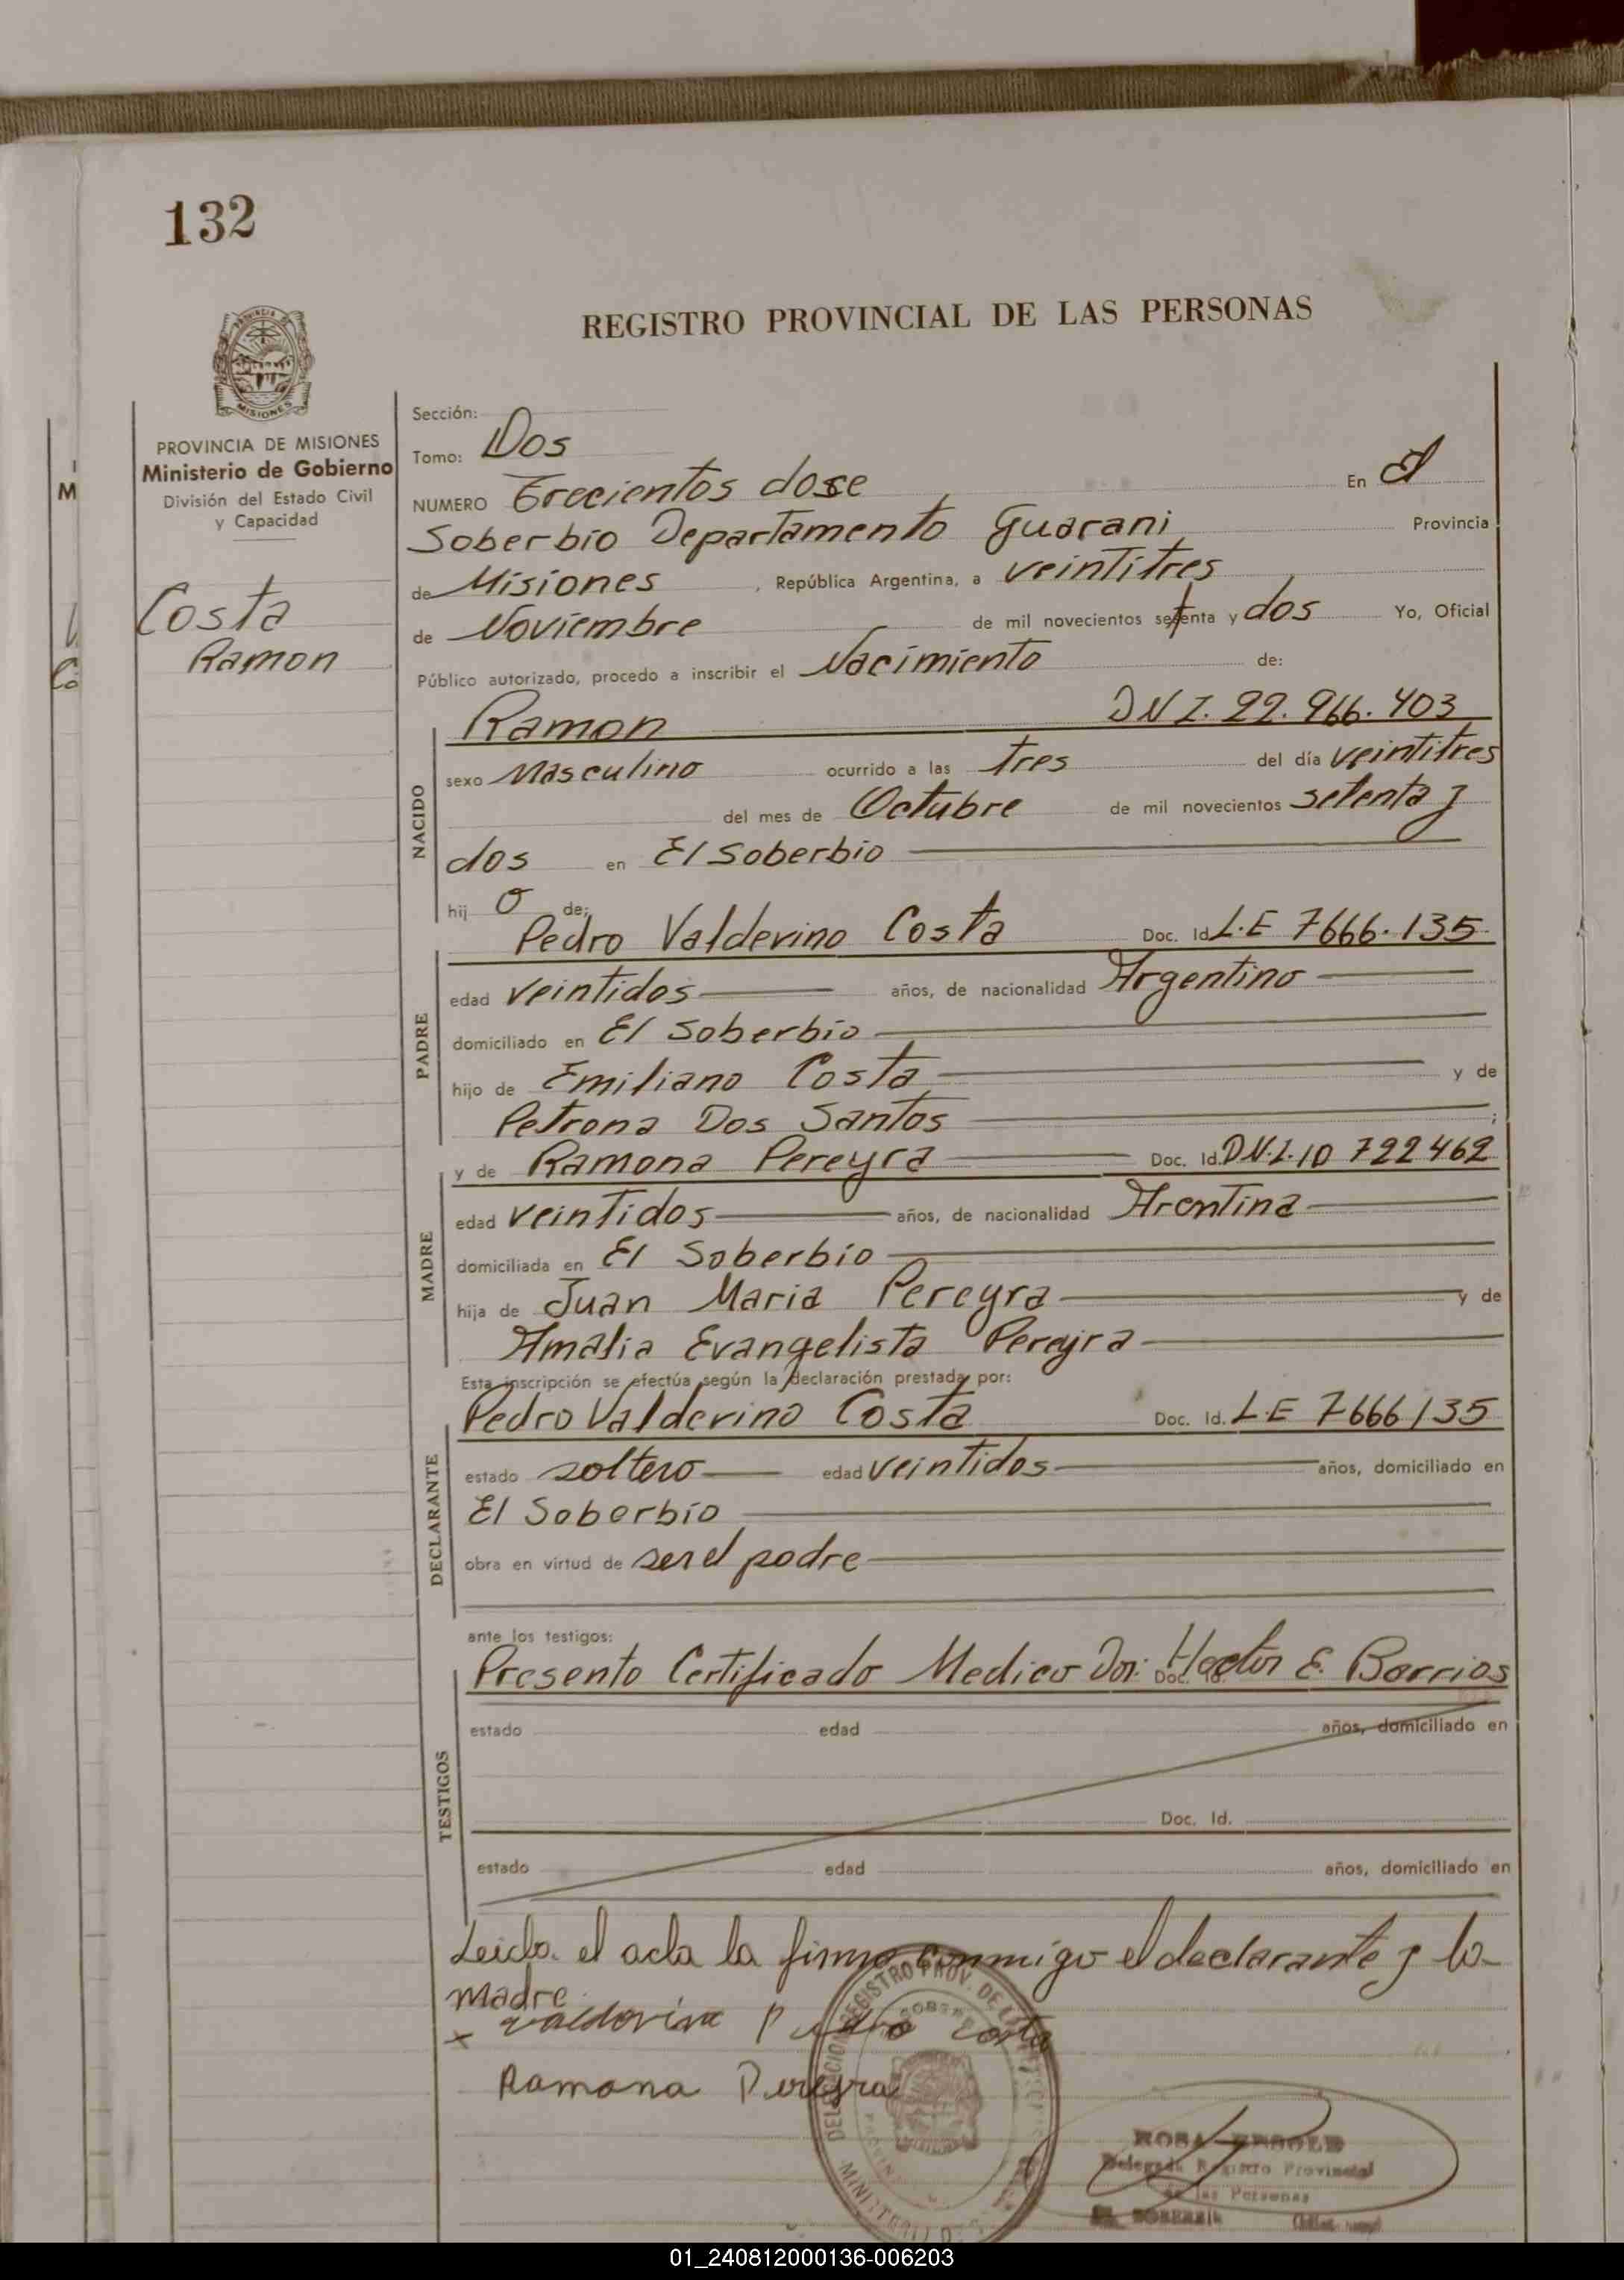 132
REGISTRO PROVINCIAL DE LAS PERSONAS
MISIONES
PROVINCIA DE MISIONES
Ministerio de Gobierno
División del Estado Civil
y Capacidad
Costa
Ramon
Sección:
Tomo: Dos
NUMERO Trecientos dose En El
Soberbio Departamento Guarani Provincia
de Misiones , República Argentina, a veintitres
de Noviembre de mil novecientos setenta y dos Yo, Oficial
Público autorizado, procedo a inscribir el Nacimiento de:
Ramon D N I. 22. 966. 403
NACIDO
sexo Masculino ocurrido a las tres del día veintitres
del mes de Octubre de mil novecientos setenta y
dos en El Soberbio
hij o de:
Pedro Valdevino Costa Doc. Id. L.E 7666.135
PADRE
edad veintidos años, de nacionalidad Argentino
domiciliado en El Soberbio
hijo de Emiliano Costa y de
Petrona Dos Santos ;
y de Ramona Pereyra Doc. Id. D.N.I. 10 722 462
MADRE
edad veintidos años, de nacionalidad Arentina
domiciliada en El Soberbio
hija de Juan Maria Pereyra y de
Amalia Evangelista Pereyra
Esta inscripción se efectúa según la declaración prestada por:
Pedro Valdevino Costa Doc. Id. L.E 7666135
DECLARANTE
estado soltero edad veintidos años, domiciliado en
El Soberbio
obra en virtud de ser el padre
ante los testigos:
Presento Certificado Medico Dor: Hector E. Barrios Doc. Id.
TESTIGOS
estado edad años, domiciliado en
Doc. Id.
estado edad años, domiciliado en
Leida el acta la firma conmigo el declarante y la
madre
x Valdovino Pedro Costa
Ramona Pereyra
DELEGACION REGISTRO PROV. DE L
Delegada Registro Provincial
de las Personas
EL SOBERBIO
01_240812000136-006203